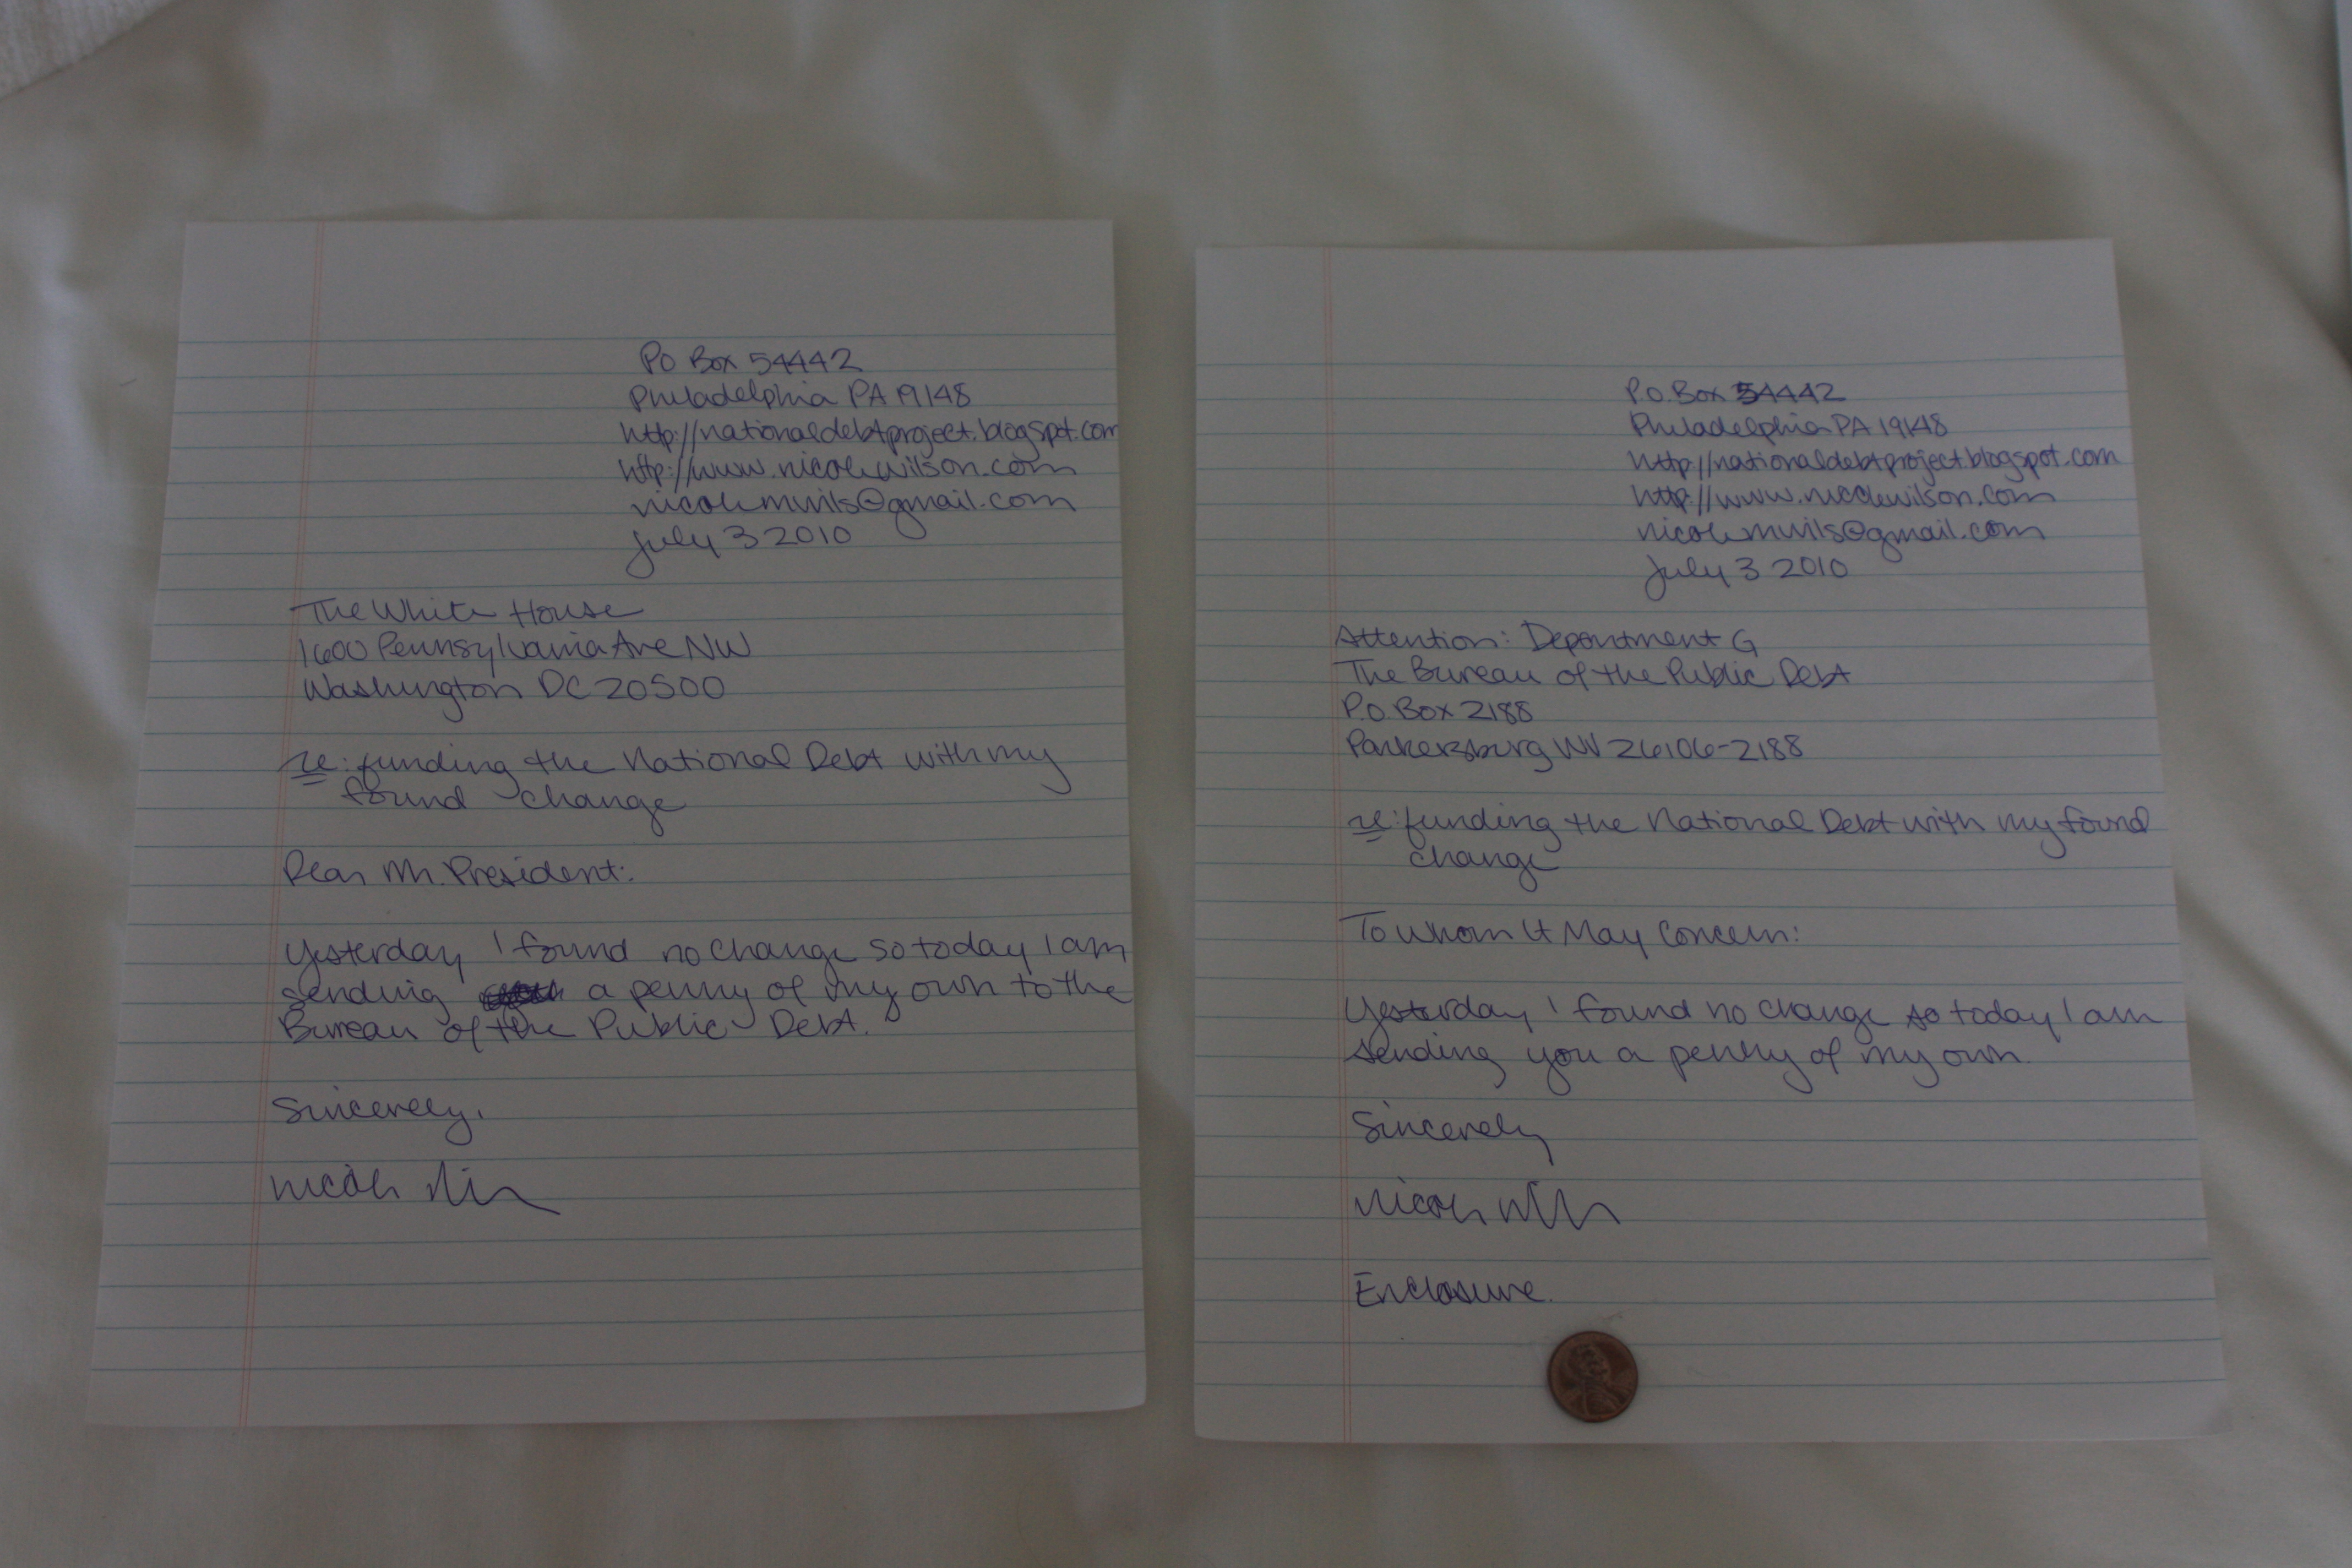 PO Box 54442
Philadelphia PA 19148
http://nationaldebtproject.blogspot.com
http://www.nicolewilson.com
nicolemwils@gmail.com
July 3 2010
The White House
1600 Pennsylvania Ave NW
Washington DC 20500
re: funding the National Debt with my
found change
Dear Mr. President:
Yesterday I found no change so today I am
sending a penny of my own to the
Bureau of the Public Debt.
Sincerely,
Nicole Wilson
P.O. Box 54442
Philadelphia PA 19148
http://nationaldebtproject.blogspot.com
http://www.nicolewilson.com
nicolemwils@gmail.com
July 3 2010
Attention: Department G
The Bureau of the Public Debt
P.O. Box 2188
Parkersburg WV 26106-2188
re: funding the National Debt with my found
change
To Whom It May Concern:
Yesterday I found no change so today I am
sending you a penny of my own.
Sincerely
Nicole Wilson
Enclosure.